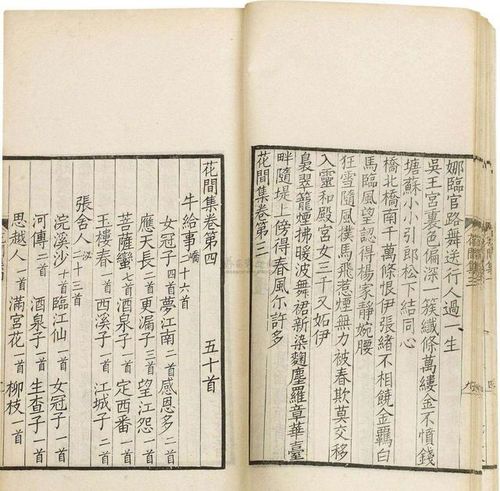 娜臨官路舞送行人過一生
吳王宮裏色偏深一簇纖條萬縷金不憤錢
塘蘇小小引郎松下結同心
橋北橋南千萬條恨伊張緒不相饒金羈白
馬臨風望認得楊家靜婉腰
狂雪隨風撲馬飛惹煙無力被春欺莫交移
入靈和殿宮女三千又妬伊
裊翠籠煙拂暖波舞裙新染麴塵羅章華臺
畔隨堤上傍得春風尒許多
花間集卷第三
花間集卷第四 五十首
牛給事嶠二十六首
女冠子四首 夢江南二首 感恩多二首
應天長二首 更漏子三首 望江怨一首
菩薩蠻七首 酒泉子一首 定西番一首
玉樓春一首 西溪子一首 江城子二首
張舍人泌二十三首
浣溪沙十首 臨江仙一首 女冠子一首
河傳二首 酒泉子二首 生查子一首
思越人一首 滿宮花一首 柳枝一首